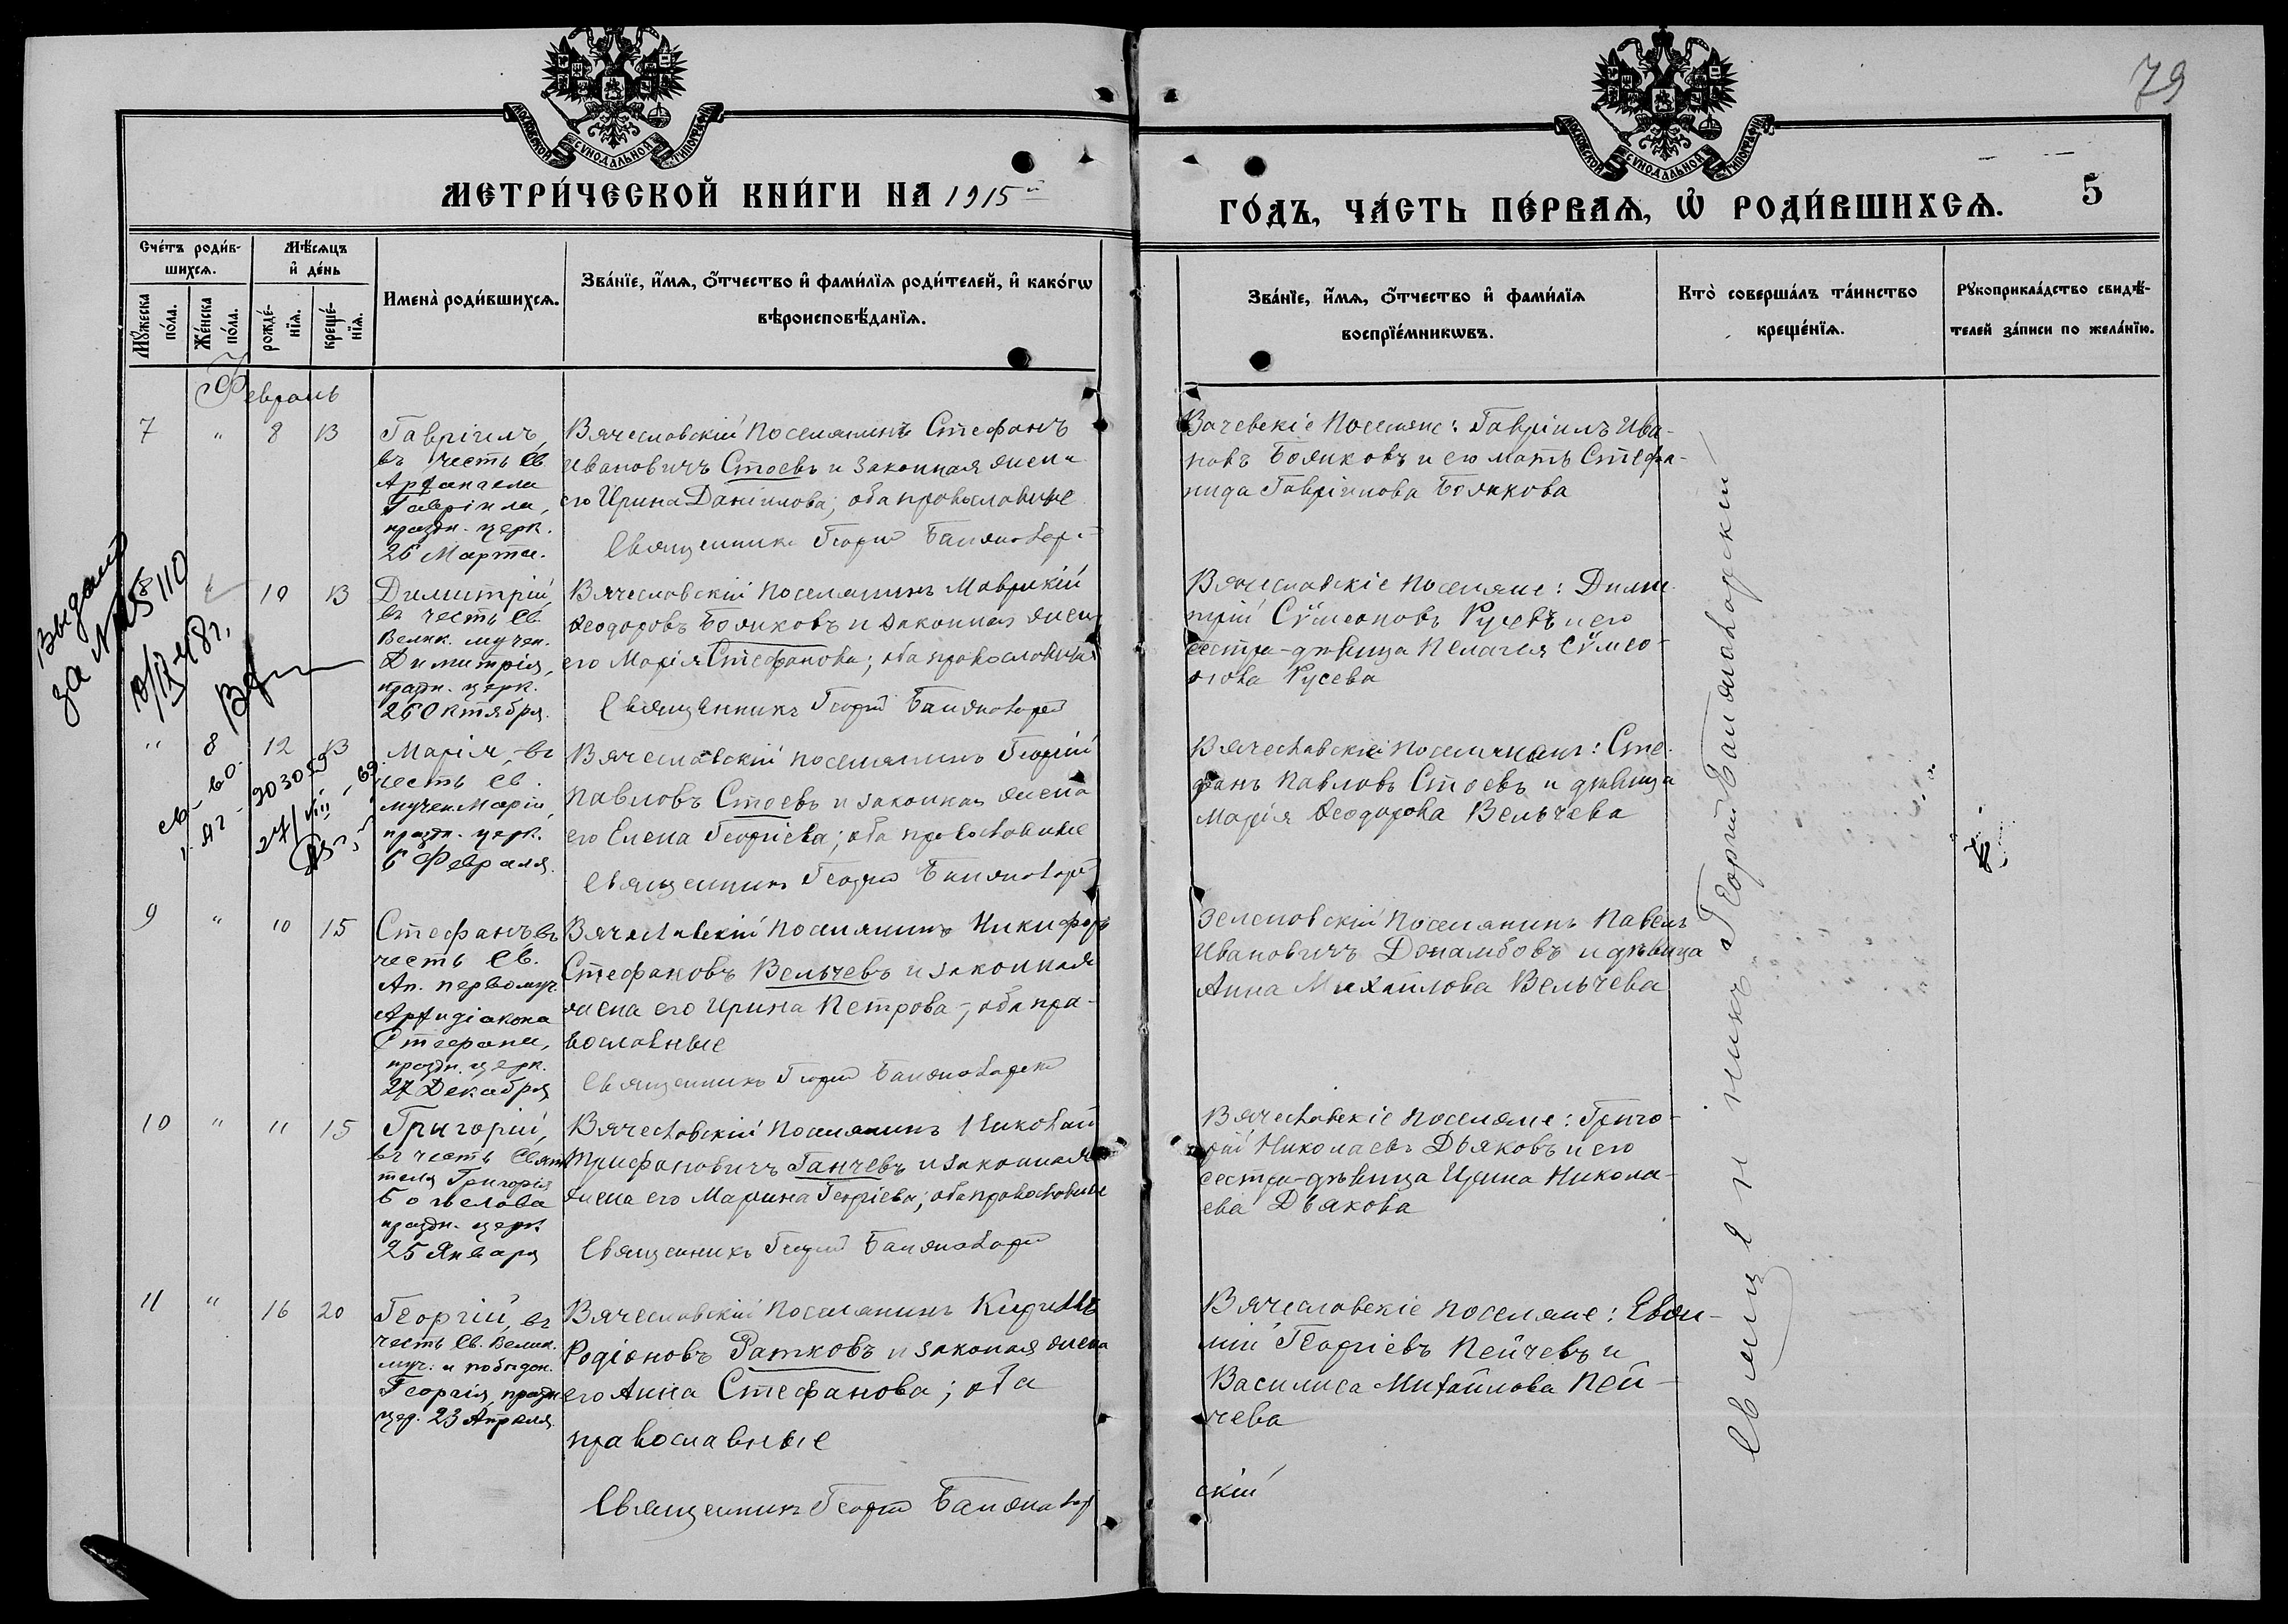 79
МОСКОВСКОЙ СѴНОДАЛЬНОЙ ТИПОГРАФІИ
МОСКОВСКОЙ СѴНОДАЛЬНОЙ ТИПОГРАФІИ
МЕТРИ́ЧЕСКОЙ КНИ́ГИ НА 1915й
ГО́ДЪ, ЧА́СТЬ ПЕ́РВАѦ, Ѡ҆ РОДИ́ВШИХСѦ.
5
Сче́тъ роди́в-
шихсѧ.
Мѣ́сѧцъ
и҆ де́нь
Имена̀ роди́вшихсѧ.
Зва́нїе, и҆́мѧ, ѻ҆́тчество и҆ фами́лїѧ роди́телей, и҆ како́гѡ
вѣроисповѣ́данїѧ.
Мꙋ́жеска
по́ла.
Же́нска
по́ла.
рожде́-
нїѧ.
креще́-
нїѧ.
Зва́нїе, и҆́мѧ, ѻ҆́тчество и҆ фами́лїѧ
воспрїе́мникѡвъ.
Кто̀ соверша́лъ та́инство
креще́нїѧ.
Рꙋкоприкла́дство свидѣ́-
телей за́писи по жела́нїю.
Февраль
7 " 8 13
Гавріилъ,
въ честь Св.
Архангела
Гавріила,
праздн. церк.
26 Марта.
Вячеславскій поселянинъ Стефанъ
Ивановичъ Стоевъ и законная жена
его Ирина Даніилова; оба православные
Священникъ Георгій
Вячевскіе поселяне: Гавріилъ Ива-
новъ Бояиковъ и его мать Стефа-
нида Гавріилова Бояикова
Выданы
за №
10 13
Димитрій,
въ честь Св.
Велик. мучен.
Димитрія,
праздн. церк.
26 Октября.
Вячеславскій поселянинъ Маврикій
Ѳеодоровъ Бояиковъ и законная жена
его Марія Стефанова; оба православные
Священникъ Георгій
Вячеславскіе поселяне: Дими-
трій Сѵмеоновъ Русевъ и его
сестра-дѣвица Пелагея Сѵмео-
нова Русева
" 8 12 13
Марія, въ
честь Св.
мучен. Маріи,
праздн. церк.
6 Февраля.
Вячеславскій поселянинъ Георгій
Павловъ Стоевъ и законная жена
его Елена Георгіева; оба православные
Священникъ Георгій
Вячеславскій поселянинъ: Сте-
фанъ Павловъ Стоевъ и дѣвица
Марія Ѳеодорова Вельчева
9 " 10 15
Стефанъ, въ
честь Св.
Ап. первомуч.
Архидіакона
Стефана,
праздн. церк.
27 Декабря
Вячеславскій поселянинъ Никифоръ
Стефановъ Вельчевъ и законная
жена его Ирина Петрова; оба пра-
вославные
Священникъ Георгій
Зеленовскій поселянинъ Павелъ
Ивановичъ и дѣвица
Анна Михаилова Вельчева
10 " 11 15
Григорій,
въ честь Святи
теля Григорія
Богослова
праздн. церк.
25 Января
Вячеславскій поселянинъ Николай
Трифановичъ Ганчевъ и законная
жена его Марина Георгіева; оба православные
Священникъ Георгій
Вячеславскіе поселяне: Григо-
рій Николаевъ Дьяковъ и его
сестра-дѣвица Ирина Никола-
ева Дьякова
11 " 16 20
Георгій, въ
честь Св. Велик.
муч. и побѣдон.
Георгія, праздн
цер. 23 Апрѣля.
Вячеславскій поселянинъ Кириллъ
Родіоновъ Ратковъ и законная жена
его Анна Стефанова; оба
православные
Священникъ Георгій
скій
Вячеславскіе поселяне: Евѳи-
мій Георгіевъ Пейчевъ и
Василиса Михаилова Пей-
чева
Священникъ Георгій